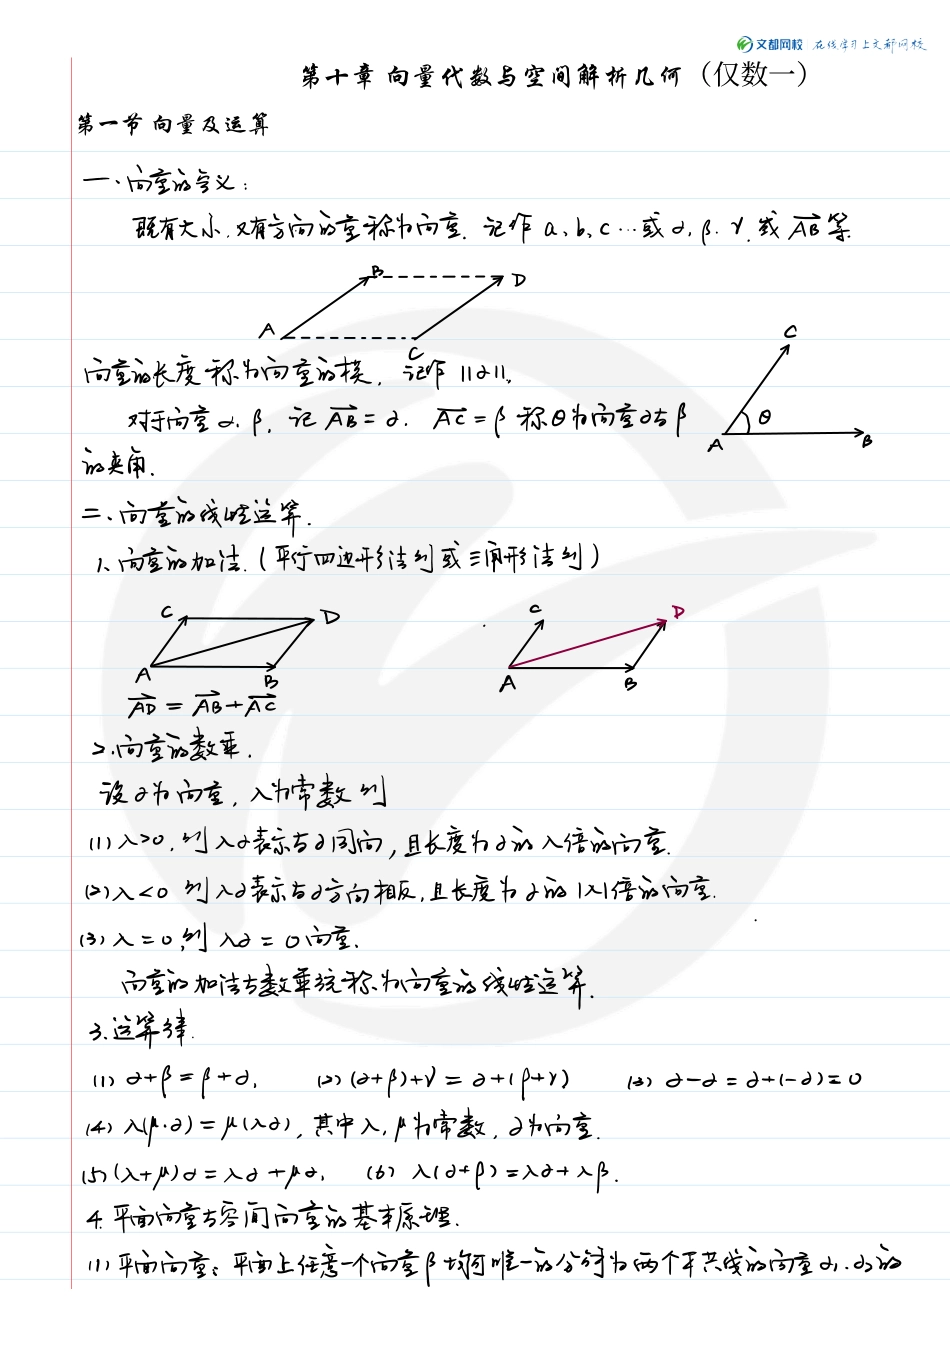 文都网校 在线学习上文都网校
第十章 向量代数与空间解析几何（仅数一）
第一节 向量及运算
一、向量的定义：
既有大小,又有方向的量称为向量. 记作 a、b、c…或 α, β. γ. 或 AB 等
B D
A C
C
向量的长度称为向量的模, 记作 ||α||.
对于向量 α. β, 记 AB = α. AC = β 称 θ 为向量 α 与 β
θ
A B
的夹角.
二、向量的线性运算.
1、向量的加法.(平行四边形法则或三角形法则)
C D C D
A B A B
AD = AB + AC
2.向量的数乘.
设 α 为向量, λ 为常数 则
(1) λ>0, 则 λα 表示与 α 同向, 且长度为 α 的 λ 倍的向量.
(2) λ<0 则 λα 表示与 α 方向相反, 且长度为 α 的 |λ| 倍的向量.
(3) λ=0, 则 λα = 0 向量.
向量的加法与数乘统称为向量的线性运算.
3.运算律.
(1) α+β = β+α, (2) (α+β)+γ = α+(β+γ) (3) α-α = α+(-α) = 0
(4) λ(μ·α) = μ(λα), 其中 λ, μ 为常数, α 为向量.
(5) (λ+μ)α = λα + μα, (6) λ(α+β) = λα + λβ.
4. 平面向量与空间向量的基本原理.
(1) 平面向量: 平面上任意一个向量 β 均可唯一的分解为两个不共线的向量 α₁. α₂ 的